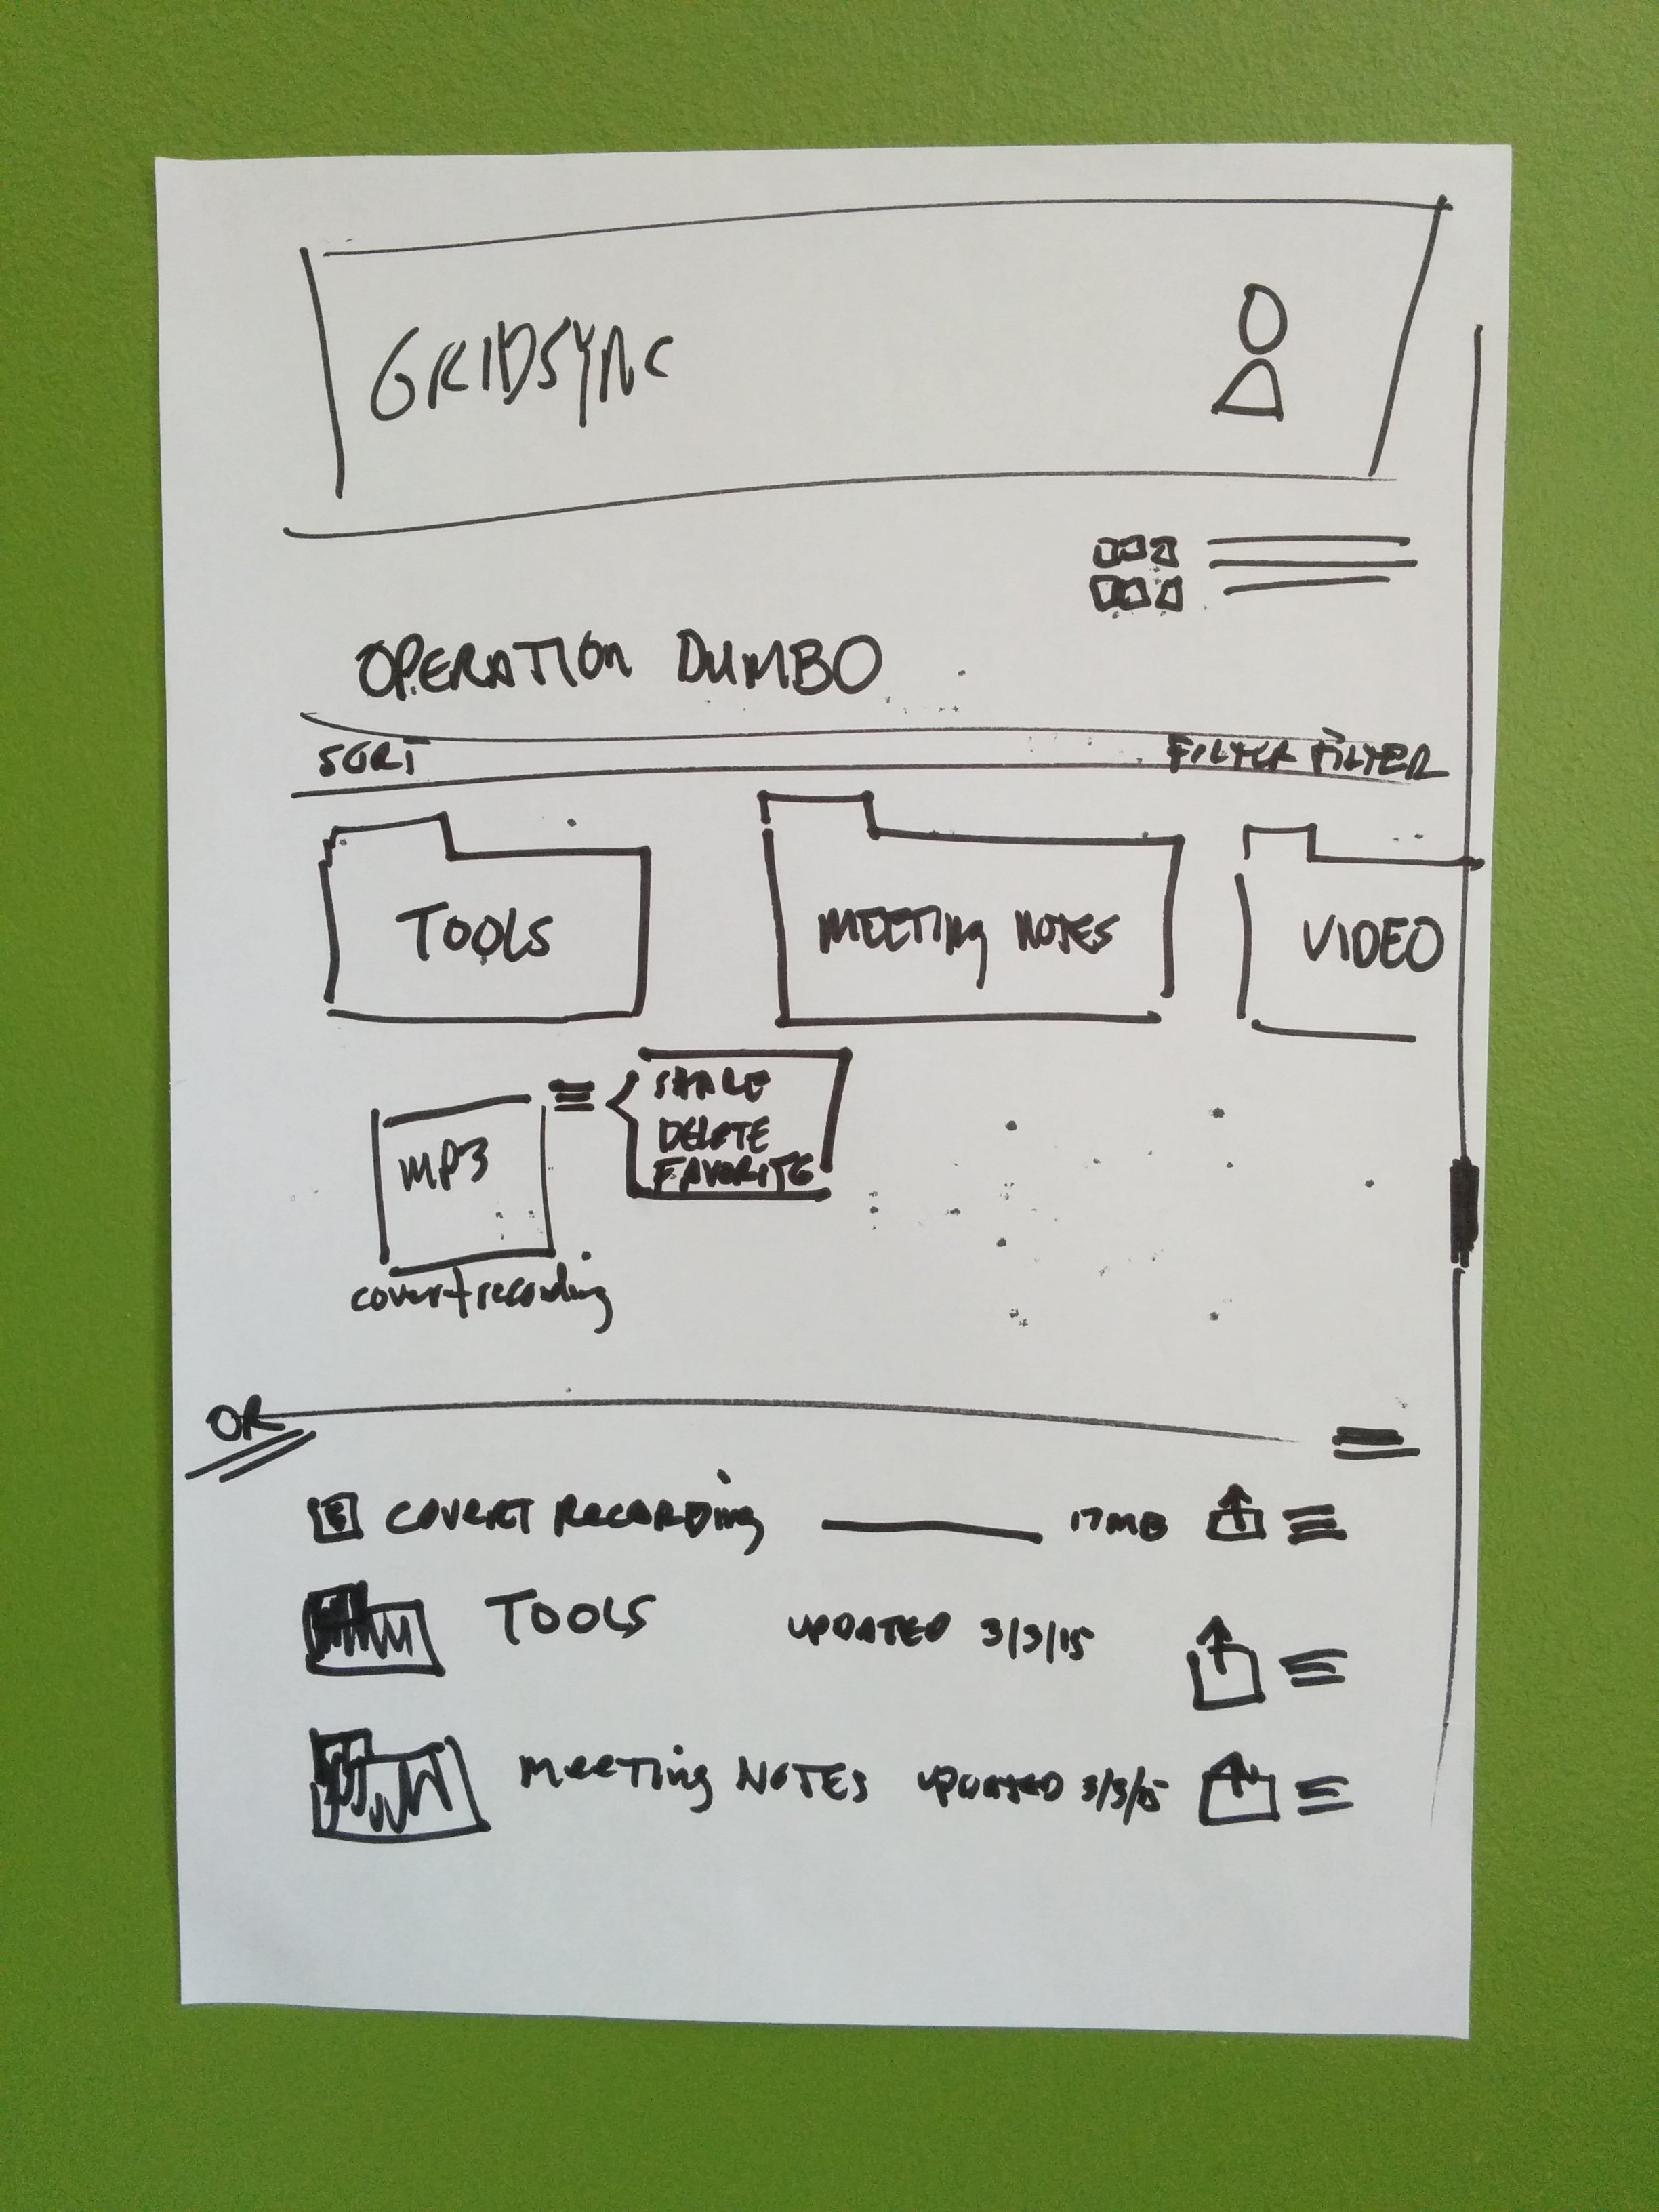 GRIDSYNC
OPERATION DUMBO
SORT FILTER FILTER
TOOLS MEETING NOTES VIDEO
MP3
SHARE
DELETE
FAVORITE
covert recording
OR
COVERT RECORDING 17MB
TOOLS UPDATED 3/3/15
MEETING NOTES UPDATED 3/3/15